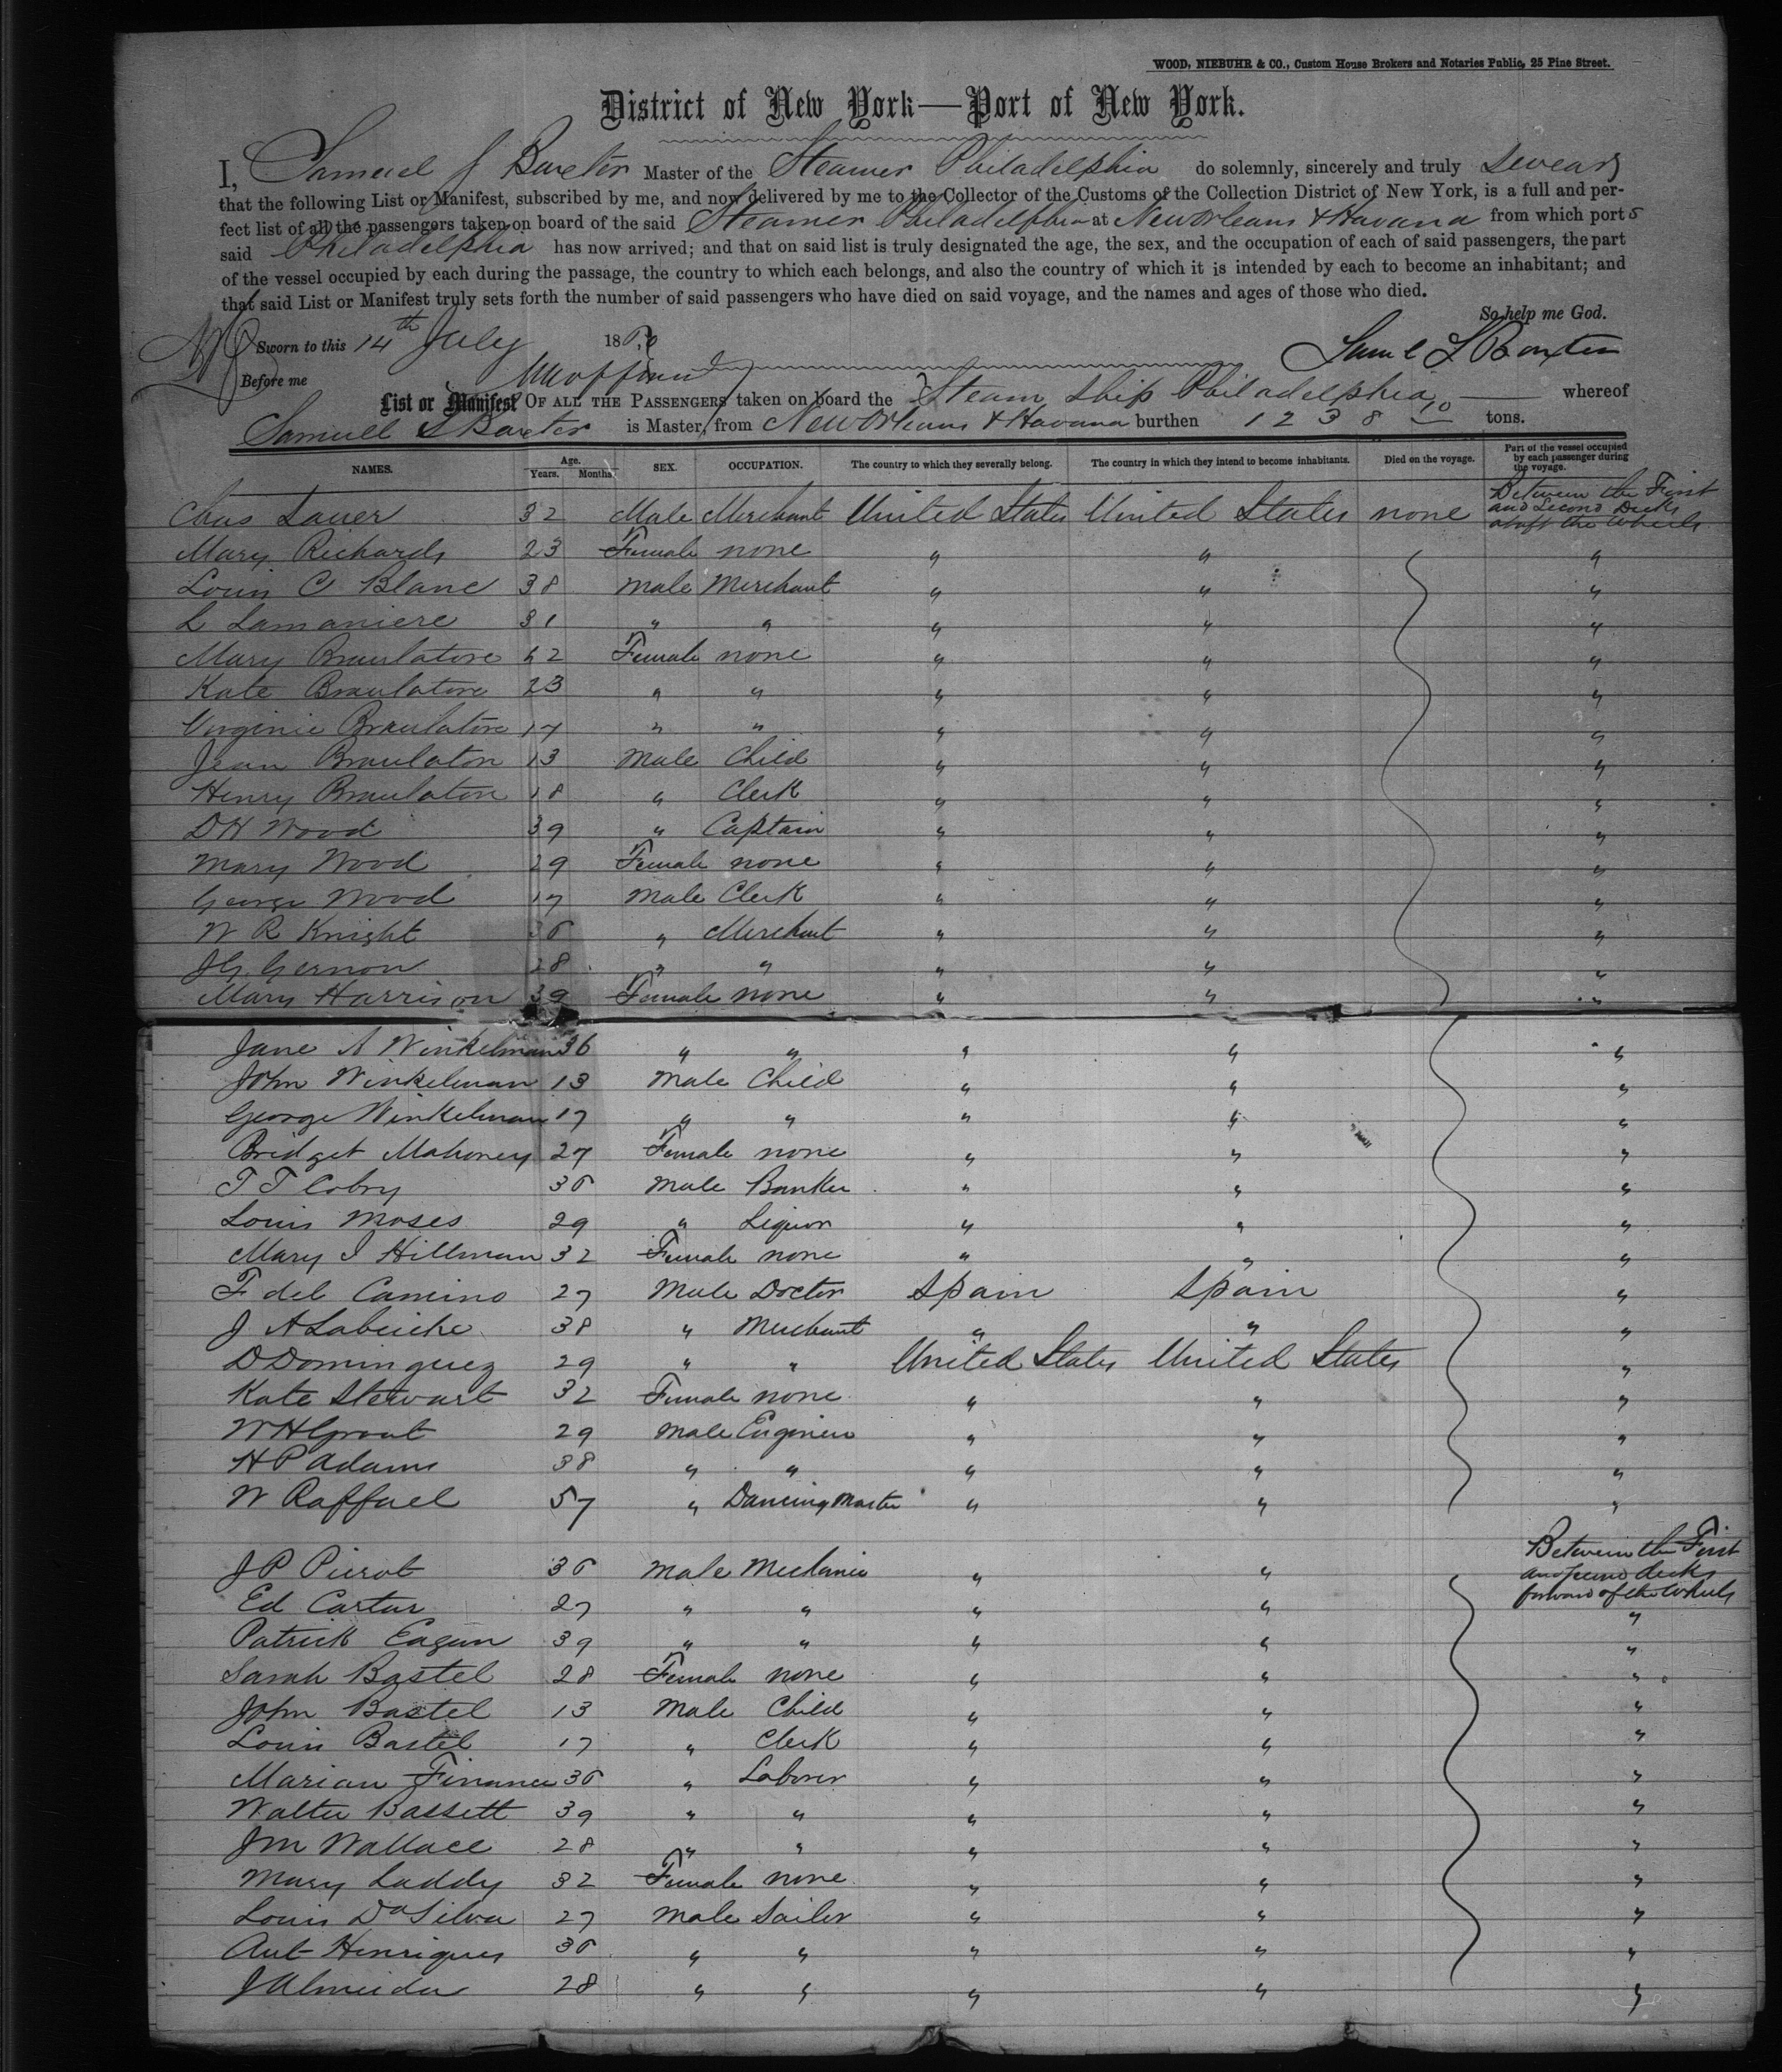 WOOD, NIEBUHR & CO., Custom House Brokers and Notaries Public, 25 Pine Street.
District of New York—Port of New York.
I, Samuel J Baxter Master of the Steamer Philadelphia do solemnly, sincerely and truly swear
that the following List or Manifest, subscribed by me, and now delivered by me to the Collector of the Customs of the Collection District of New York, is a full and per-
fect list of all the passengers taken on board of the said Steamer Philadelphia at New Orleans & Havana from which port s
said Philadelphia has now arrived; and that on said list is truly designated the age, the sex, and the occupation of each of said passengers, the part
of the vessel occupied by each during the passage, the country to which each belongs, and also the country of which it is intended by each to become an inhabitant; and
that said List or Manifest truly sets forth the number of said passengers who have died on said voyage, and the names and ages of those who died.
So help me God.
Sworn to this 14th July 18 Saml L Baxter
Before me
List or Manifest OF ALL THE PASSENGERS taken on board the Steam Ship Philadelphia whereof
Samuell L Baxter is Master, from New Orleans & Havana burthen 1238 10 tons.
NAMES. Age. Years. Months. SEX. OCCUPATION. The country to which they severally belong. The country in which they intend to become inhabitants. Died on the voyage. Part of the vessel occupied by each passenger during the voyage.
Chas Lauer 32 Male Merchant United States United States none Between the First and Second Decks abaft the Wheels
Mary Richards 23 Female none " " "
Louis C Blanc 38 Male Merchant " " "
L Lamaniere 31 " " " " "
Mary Braulatore 42 Female none " " "
Kate Braulatore 23 " " " " "
Virginie Braulatore 17 " " " " "
Jean Braulaton 13 Male Child " " "
Henry Braulatore 18 " Clerk " " "
D H Wood 39 " Captain " " "
Mary Wood 29 Female none " " "
George Wood 17 Male Clerk " " "
W R Knight 36 " Merchant " " "
J G Gernon 28 " " " " "
Mary Harrison 39 Female none " " "
Jane A Winkelman 36 " " " " "
John Winkelman 13 Male Child " " "
George Winkelman 17 " " " " "
Bridget Mahoney 27 Female none " " "
T T Cobry 36 Male Banker " " "
Louis Moses 29 " Liquor " " "
Mary I Hillman 32 Female none " " "
F del Camino 27 Male Doctor Spain Spain "
J A Labeiche 38 " Merchant " " "
D Dominguez 29 " " United States United States "
Kate Stewart 32 Female none " " "
W H Grout 29 Male Engineer " " "
H P Adams 38 " " " " "
W Raffael 57 " Dancing Master " " "
J P Pierot 36 Male Mechanic " " Between the First and second decks forward of the Wheels
Ed Carter 27 " " " " "
Patrick Eagan 39 " " " " "
Sarah Bastel 28 Female none " " "
John Bastel 13 Male Child " " "
Louis Bastel 17 " Clerk " " "
Marian Finance 36 " Laborer " " "
Walter Bassett 39 " " " " "
J M Wallace 28 " " " " "
Mary Laddy 32 Female none " " "
Louis Da Silva 27 Male Sailor " " "
Ant Henriques 36 " " " " "
J Almeida 28 " " " " "